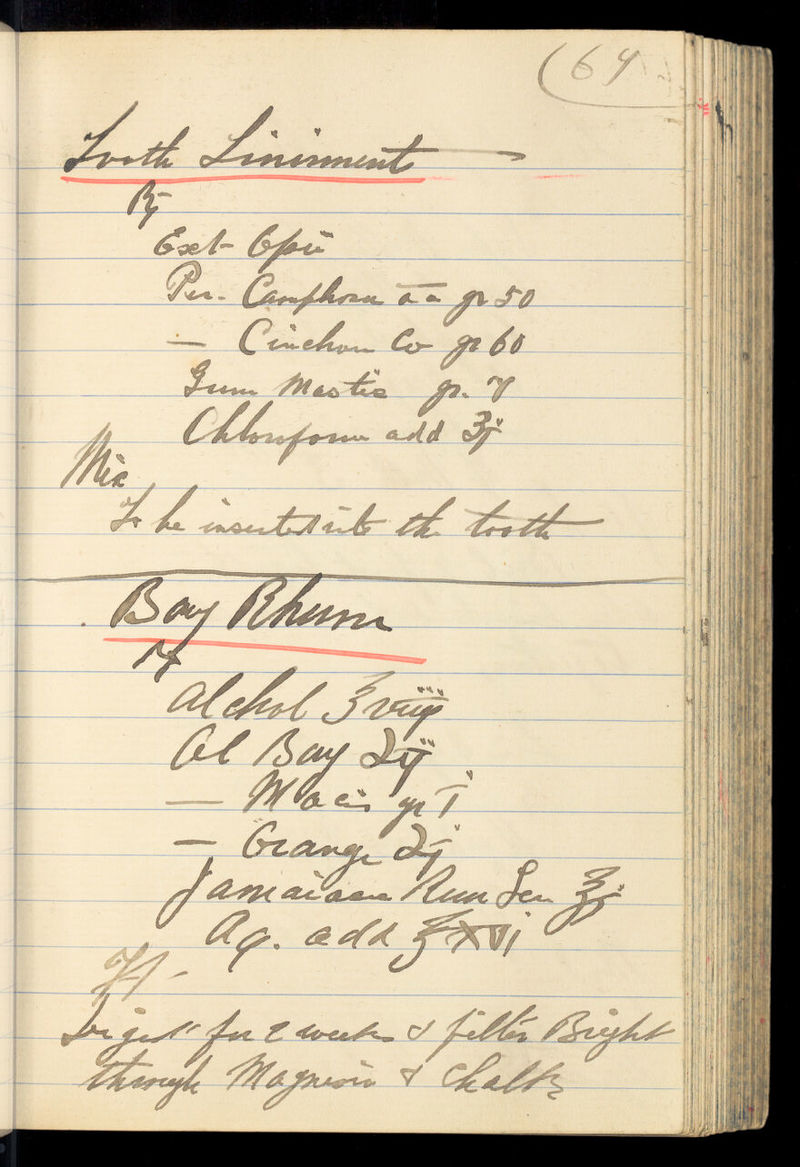 (64
Tooth Liniment
℞
Ext Opii
Pu. Camphora aa gr 50
— Cinchon Co gr 60
Gum Mastic gr.
Chloroform add ʒj
Mix
To be inserted into the tooth
Bay Rhum
℞
Alchol ℥viij
Ol Bay ʒij
— Macis gr i
— Orange ʒj
Jamaicaca Rum ℥j
Aq. add ℥xvi
Ft
Digest for 2 weeks & filter Bright
through Magnesia & Chalk